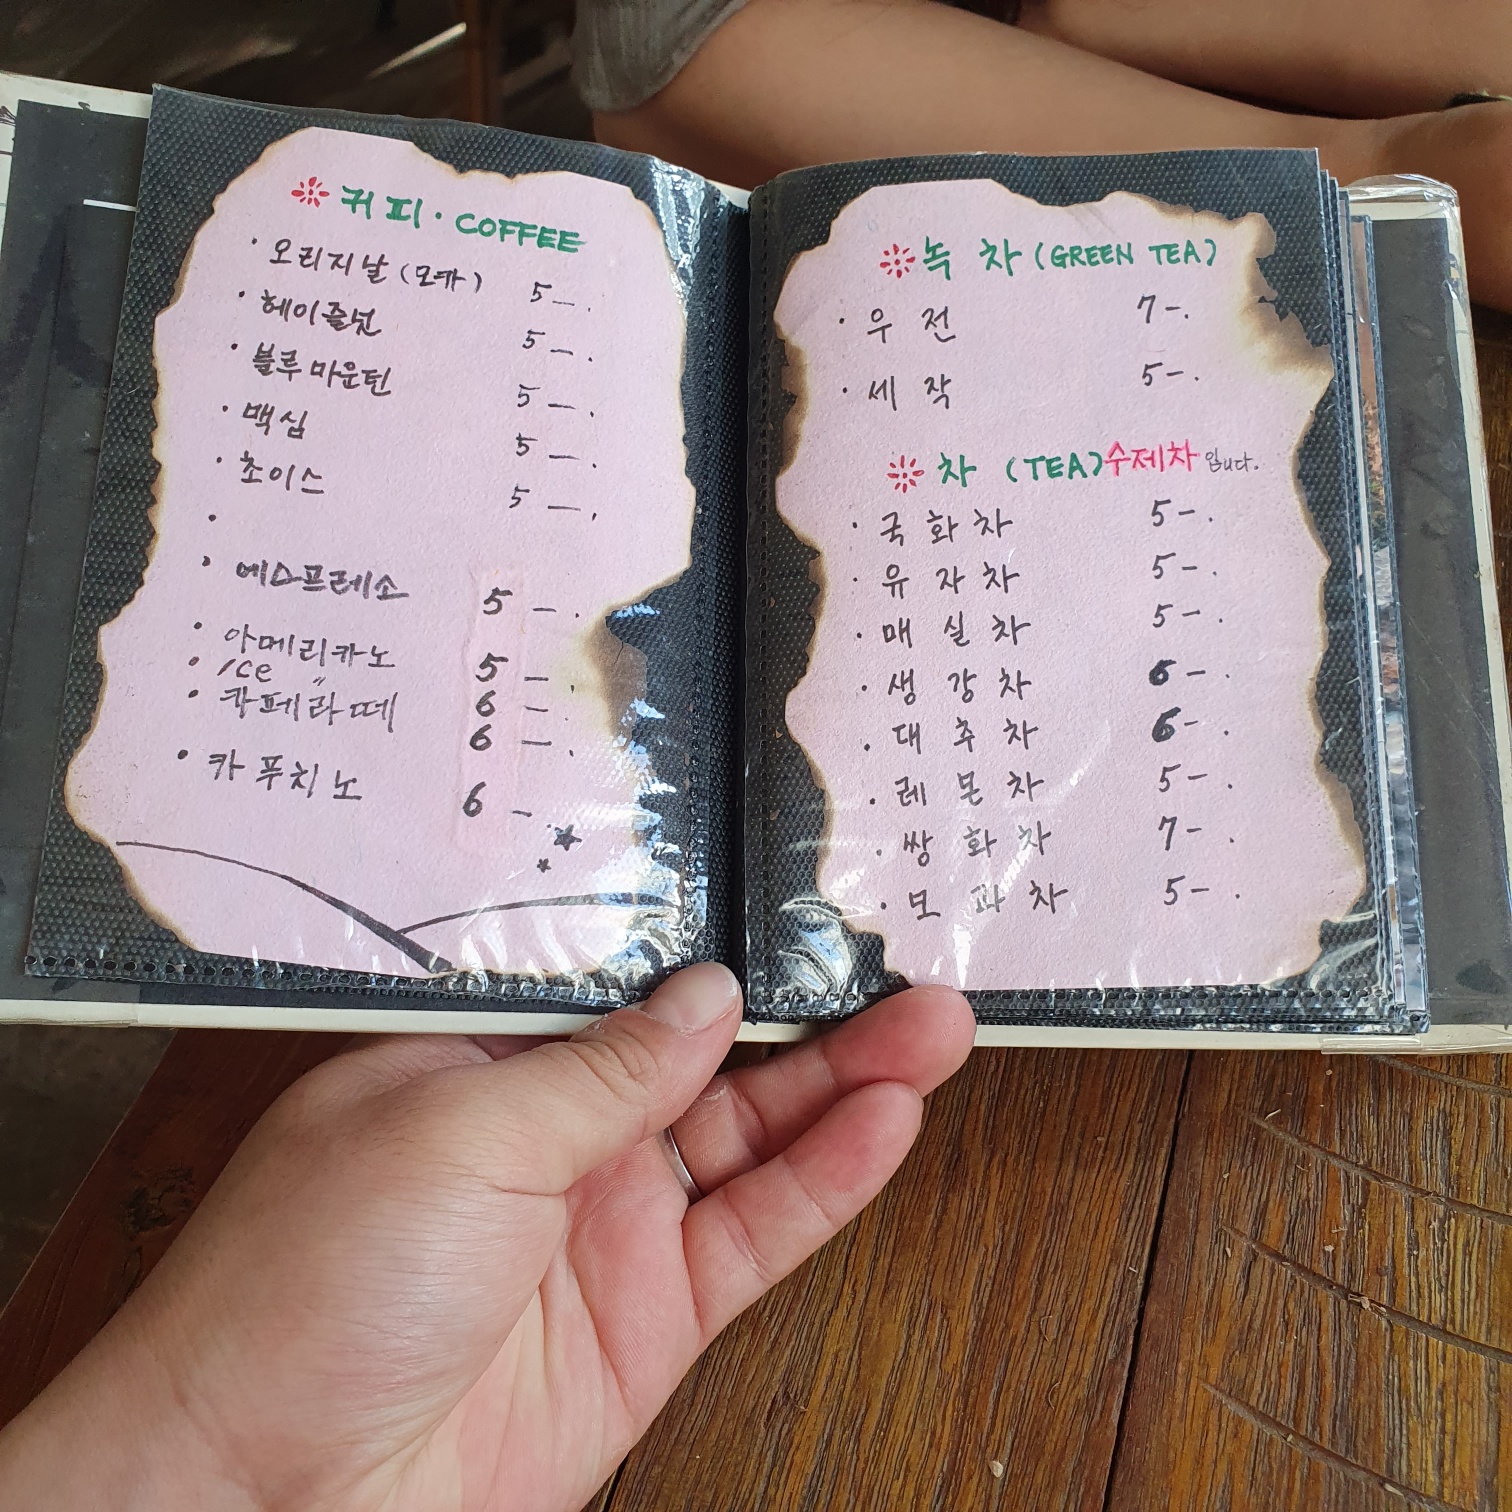 커피 · COFFEE
· 오리지날 (모카) 5 —.
· 헤이즐넛 5 —.
· 블루마운틴 5 —.
· 맥심 5 —.
· 초이스 5 —.
·
· 에스프레소 5 —.
· 아메리카노 5 —
· ICE 〃 6 —.
· 카페라떼 6 —.
· 카푸치노 6 —.
녹차 (GREEN TEA)
· 우전 7 -.
· 세작 5 -.
차 (TEA) 수제차 입니다.
· 국화차 5 -.
· 유자차 5 -.
· 매실차 5 -.
· 생강차 6 -.
· 대추차 6 -.
· 레몬차 5 -.
· 쌍화차 7 -.
· 모과차 5 -.